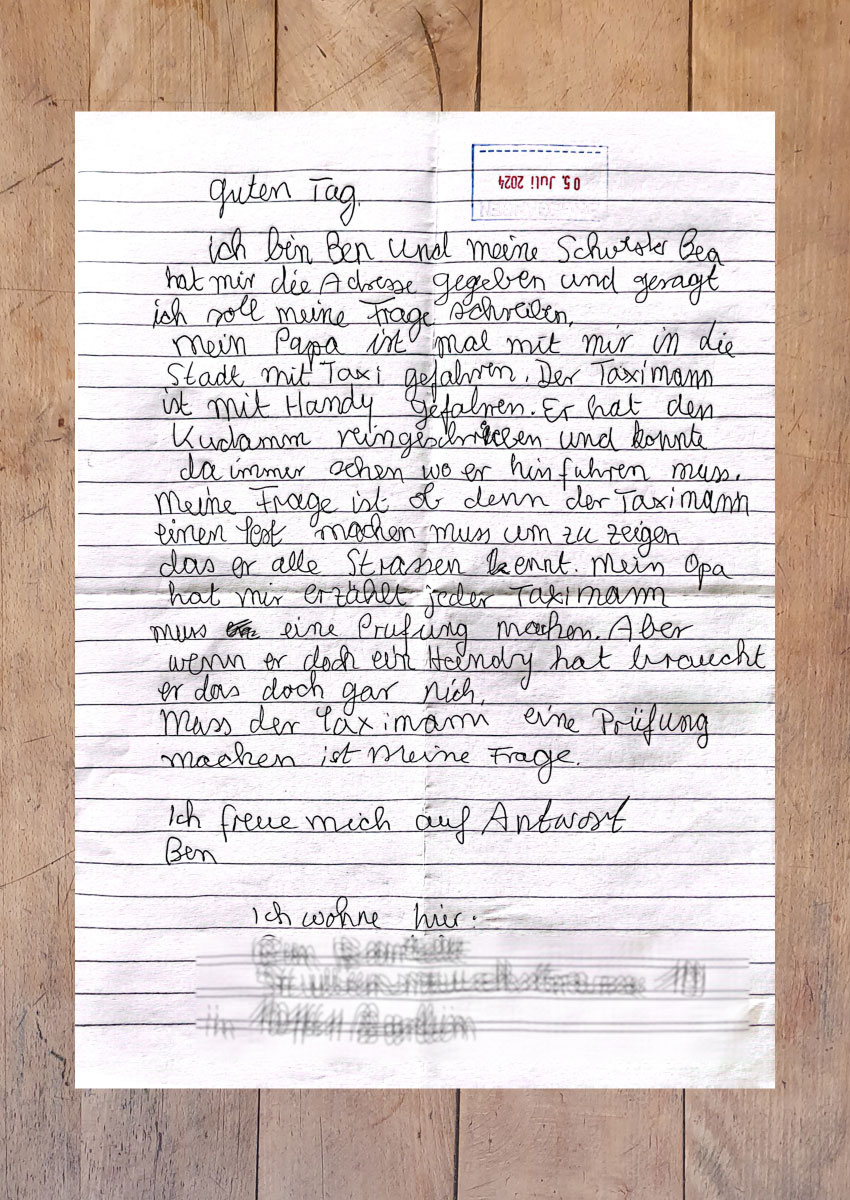 05. Juli 2024
guten Tag.
ich bin Ben und meine Schwester Bea
hat mir die Adresse gegeben und gesagt
ich soll meine Frage schreiben.
mein Papa ist mal mit mir in die
Stadt mit Taxi gefahren. Der Taximann
ist mit Handy gefahren. Er hat den
Kudamm reingeschrieben und konnte
da immer sehen wo er hinfahren muss.
Meine Frage ist ob denn der Taximann
einen Test machen muss um zu zeigen
das er alle Strassen kennt. Mein Opa
hat mir erzählt jeder Taximann
muss eine Prüfung machen. Aber
wenn er doch ein Handy hat braucht
er das doch gar nich.
Muss der Taximann eine Prüfung
machen ist Meine Frage.
Ich freue mich auf Antwort
Ben
Ich wohne hier: